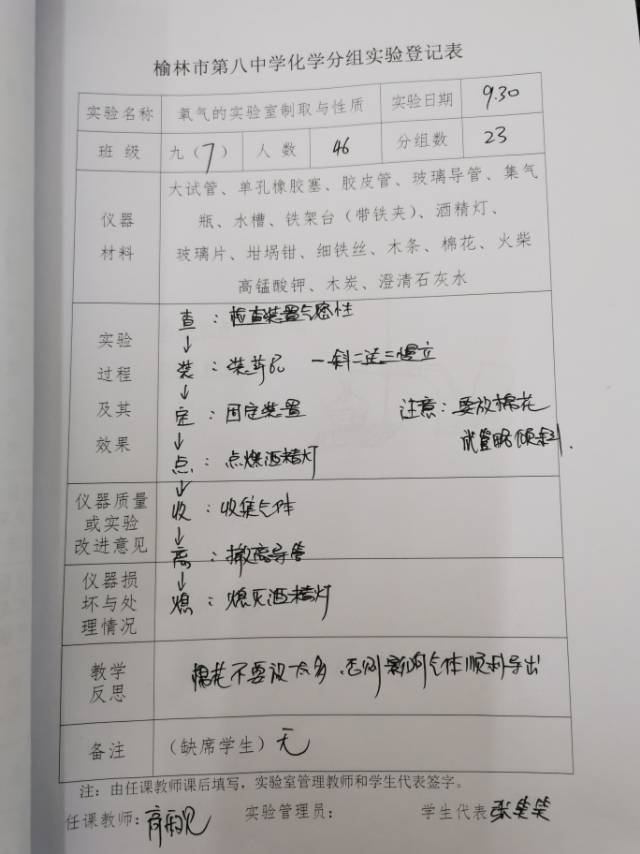 榆林市第八中学化学分组实验登记表
实验名称 氧气的实验室制取与性质 实验日期 9.30
班 级 九（7） 人 数 46 分组数 23
仪器
材料
大试管、单孔橡胶塞、胶皮管、玻璃导管、集气
瓶、水槽、铁架台（带铁夹）、酒精灯、
玻璃片、坩埚钳、细铁丝、木条、棉花、火柴
高锰酸钾、木炭、澄清石灰水
实验
过程
及其
效果
查：检查装置气密性
↓
装：装药品 一斜二送三慢立
↓
定：固定装置 注意：要放棉花
↓ 试管略倾斜.
点：点燃酒精灯
↓
仪器质量
或实验
改进意见
收：收集气体
↓
离：撤离导管
↓
仪器损
坏与处
理情况
熄：熄灭酒精灯
教学
反思
棉花不要放太多.否则影响气体顺利导出
备注 （缺席学生）无
注：由任课教师课后填写，实验室管理教师和学生代表签字。
任课教师： 实验管理员： 学生代表张笑笑